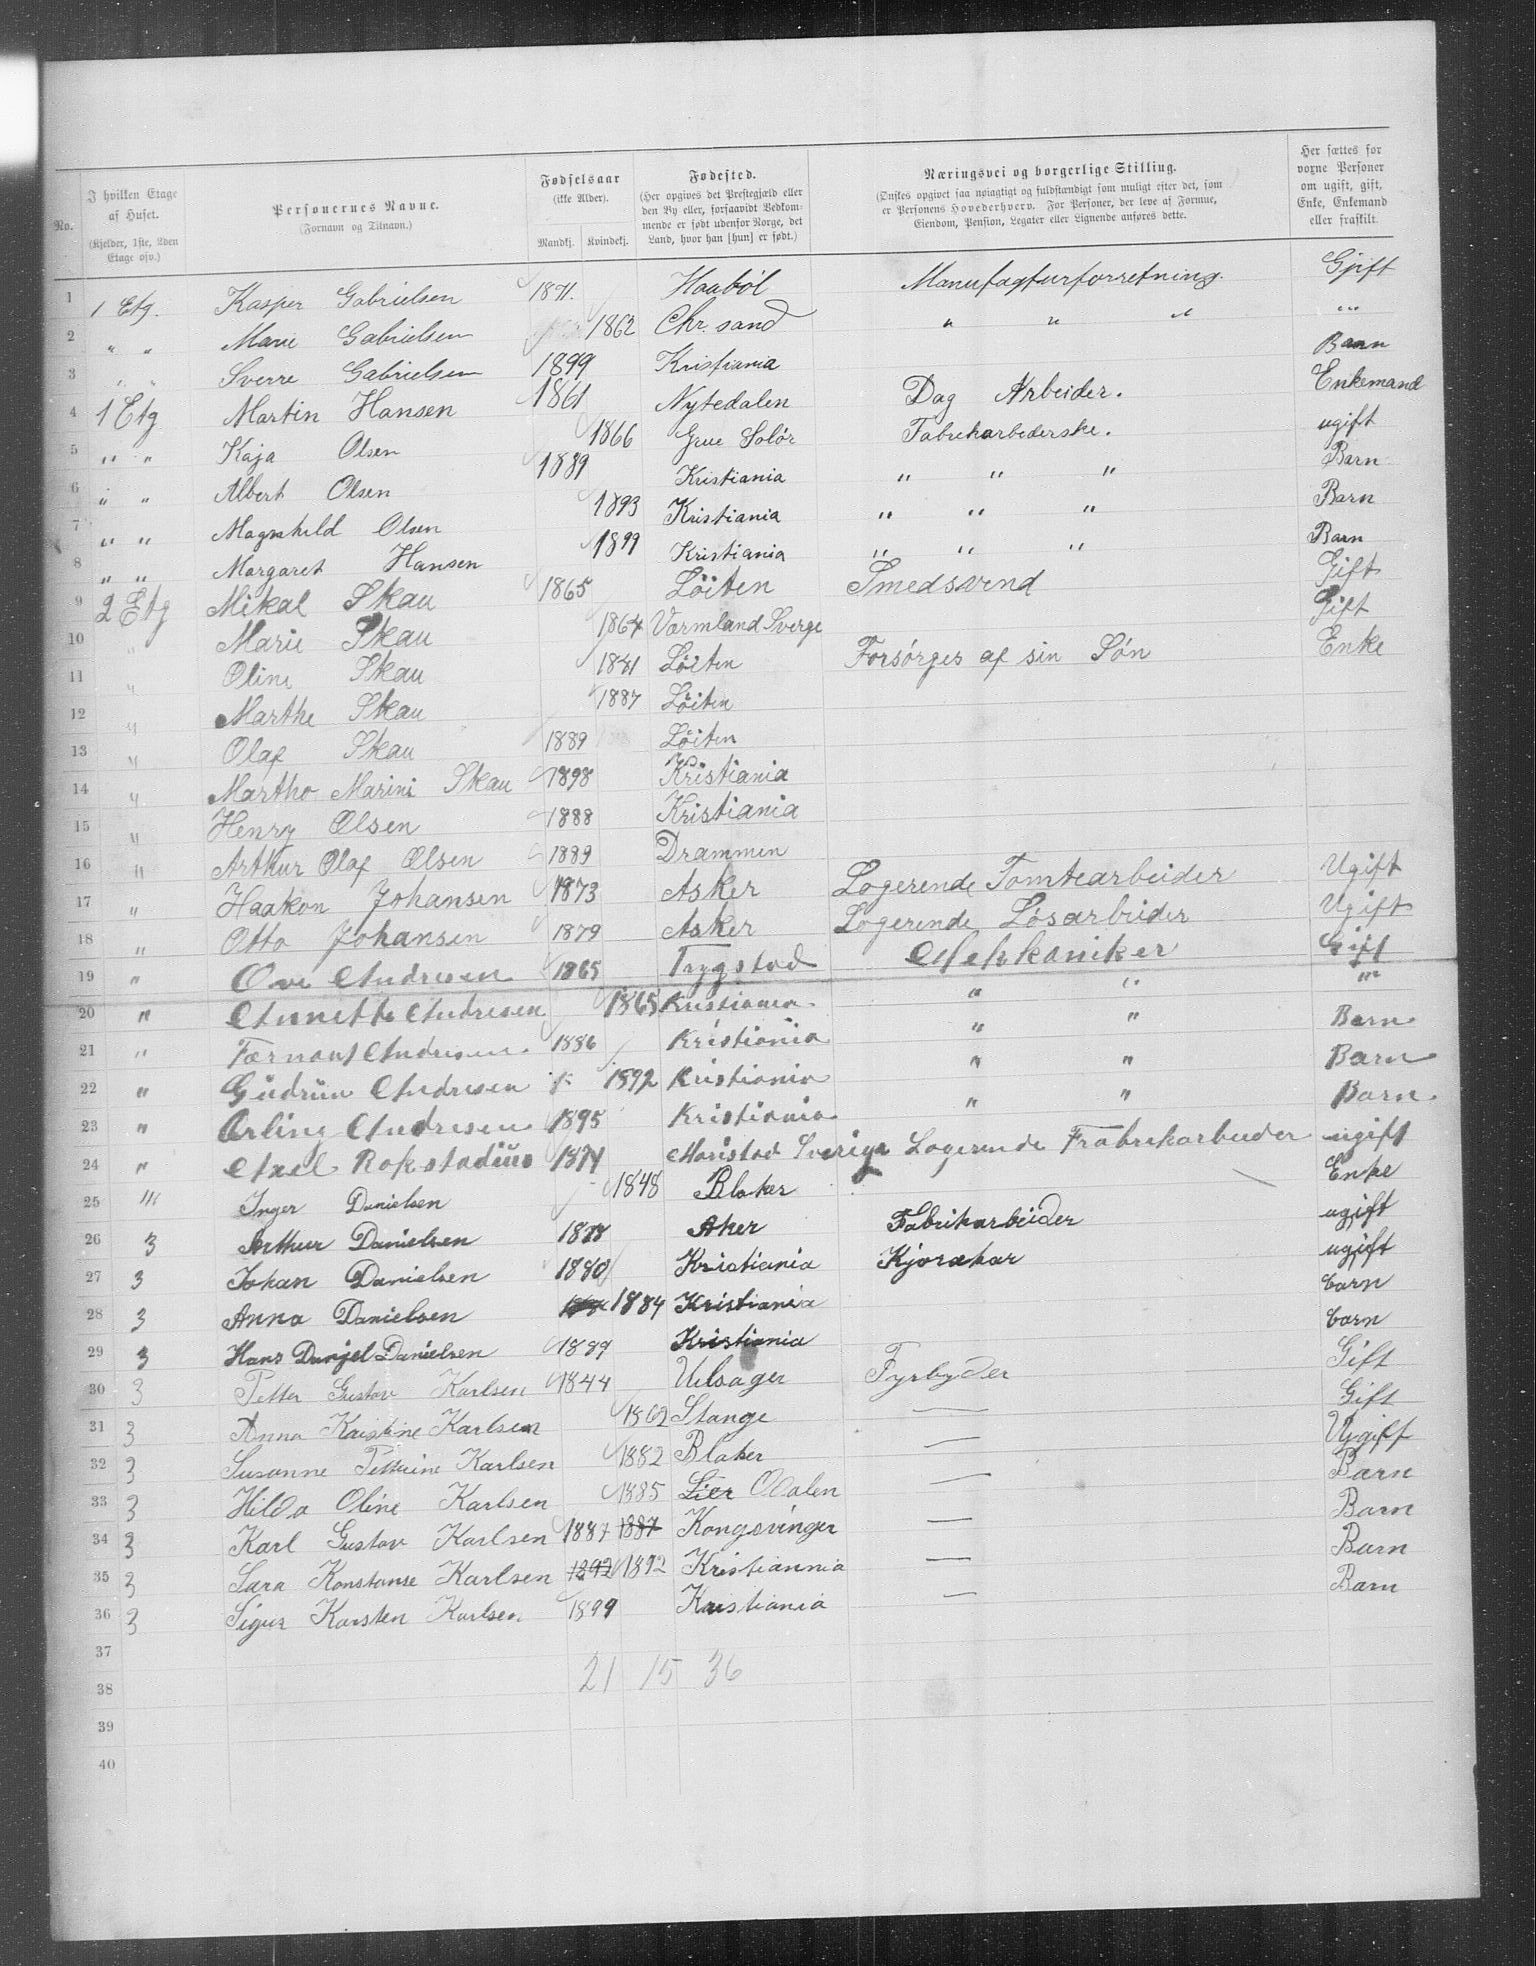 No.
I hvilken Etage af Huset. (Kjelder, 1ste, 2den Etage osv.)
Personernes Navne. (Fornavn og Tilnavn.)
Fødselsaar (ikke Alder). Mandkj. Kvindekj.
Fødested. (Her opgives det Prestegjæld eller den By eller, forsaavidt Bedkommende er født udenfor Norge, det Land, hvor han [hun] er født.)
Næringsvei og borgerlige Stilling. (Ønskes opgivet saa nøiagtigt og fuldstændigt som muligt efter det, som er Personens Hovederhverv. For Personer, der leve af Formue, Eiendom, Pension, Legater eller Lignende anføres dette.)
Her sættes for voxne Personer om ugift, gift, Enke, Enkemand eller fraskilt.
1 1 Etg. Kasper Gabrielsen 1871. Haabøl Manufagturforretning. Gjift
2 " " Marie Gabrielsen 1862 Chr. sand " " " "
3 " " Sverre Gabrielsen 1899 Kristiania Barn
4 1 Etg Martin Hansen 1861 Nytedalen Dag Arbeider. Enkemand
5 " " Kaja Olsen 1866 Grue Solør Fabrikarbederske. ugift
6 " " Albert Olsen 1889 Kristiania " " " Barn
7 " " Magnhild Olsen 1893 Kristiania " " " Barn
8 " " Margaret Hansen 1899 Kristiania " " " Barn
9 2 Etg Mikal Skau 1865 Löiten Smedsvend Gift
10 " Marie Skau 1864 Varmland Sverge Gift
11 " Oline Skau Löiten Forsørges af sin Søn Enke
12 " Marthe Skau 1887 Löiten
13 " Olaf Skau 1889 Löiten
14 " Martho Marini Skau 1898 Kristiania
15 " Henry Olsen 1888 Kristiania
16 " Arthur Olaf Olsen 1889 Drammen
17 " Haakon Johansen 1873 Asker Logerende Tomtearbeider Ugift
18 " Otto Johansen 1879 Asker Logerende Løsarbeider Ugift
19 " Ove Andresen 1865 Trygstad Mehkaniker Gift
20 " Annette Andresen 1865 Kristiania " " "
21 " Færnant Andresen 1886 Kristiania " " Barn
22 " Gudrün Andresen 1892 Kristiania " " Barn
23 " Arling Andresen 1895 Kristiania " " Barn.
24 " Axel Rokstadius 1871 Maristad Sverige Logerende Frabrikarbeider ugift
25 "' Inger Danielsen 1848 Blaker Enke
26 3 Arthur Danielsen 1878 Aker Fabrikarbeider ugift
27 3 Johan Danielsen 1880 Kristiania Kjørskar ugift
28 3 Anna Danielsen 1884 Kristiania barn
29 3 Hans Danjel Danielsen 1889 Kristiania barn
30 3 Petter Gustav Karlsen 1844 Ulsager Fyrbyder Gift
31 3 Anna Kristine Karlsen 1862 Stange — Gift
32 3 Susanne Petterine Karlsen 1882 Blaker — Ugift
33 3 Hilda Oline Karlsen 1885 Lier Odalen — Barn
34 3 Karl Gustav Karlsen 1887 1887 Kongsvinger — Barn
35 3 Sara Konstanse Karlsen 1892 1892 Kristiannia — Barn
36 3 Sigur Karsten Karlsen 1899 Kristiania — Barn
37
38 21 15 36
39
40